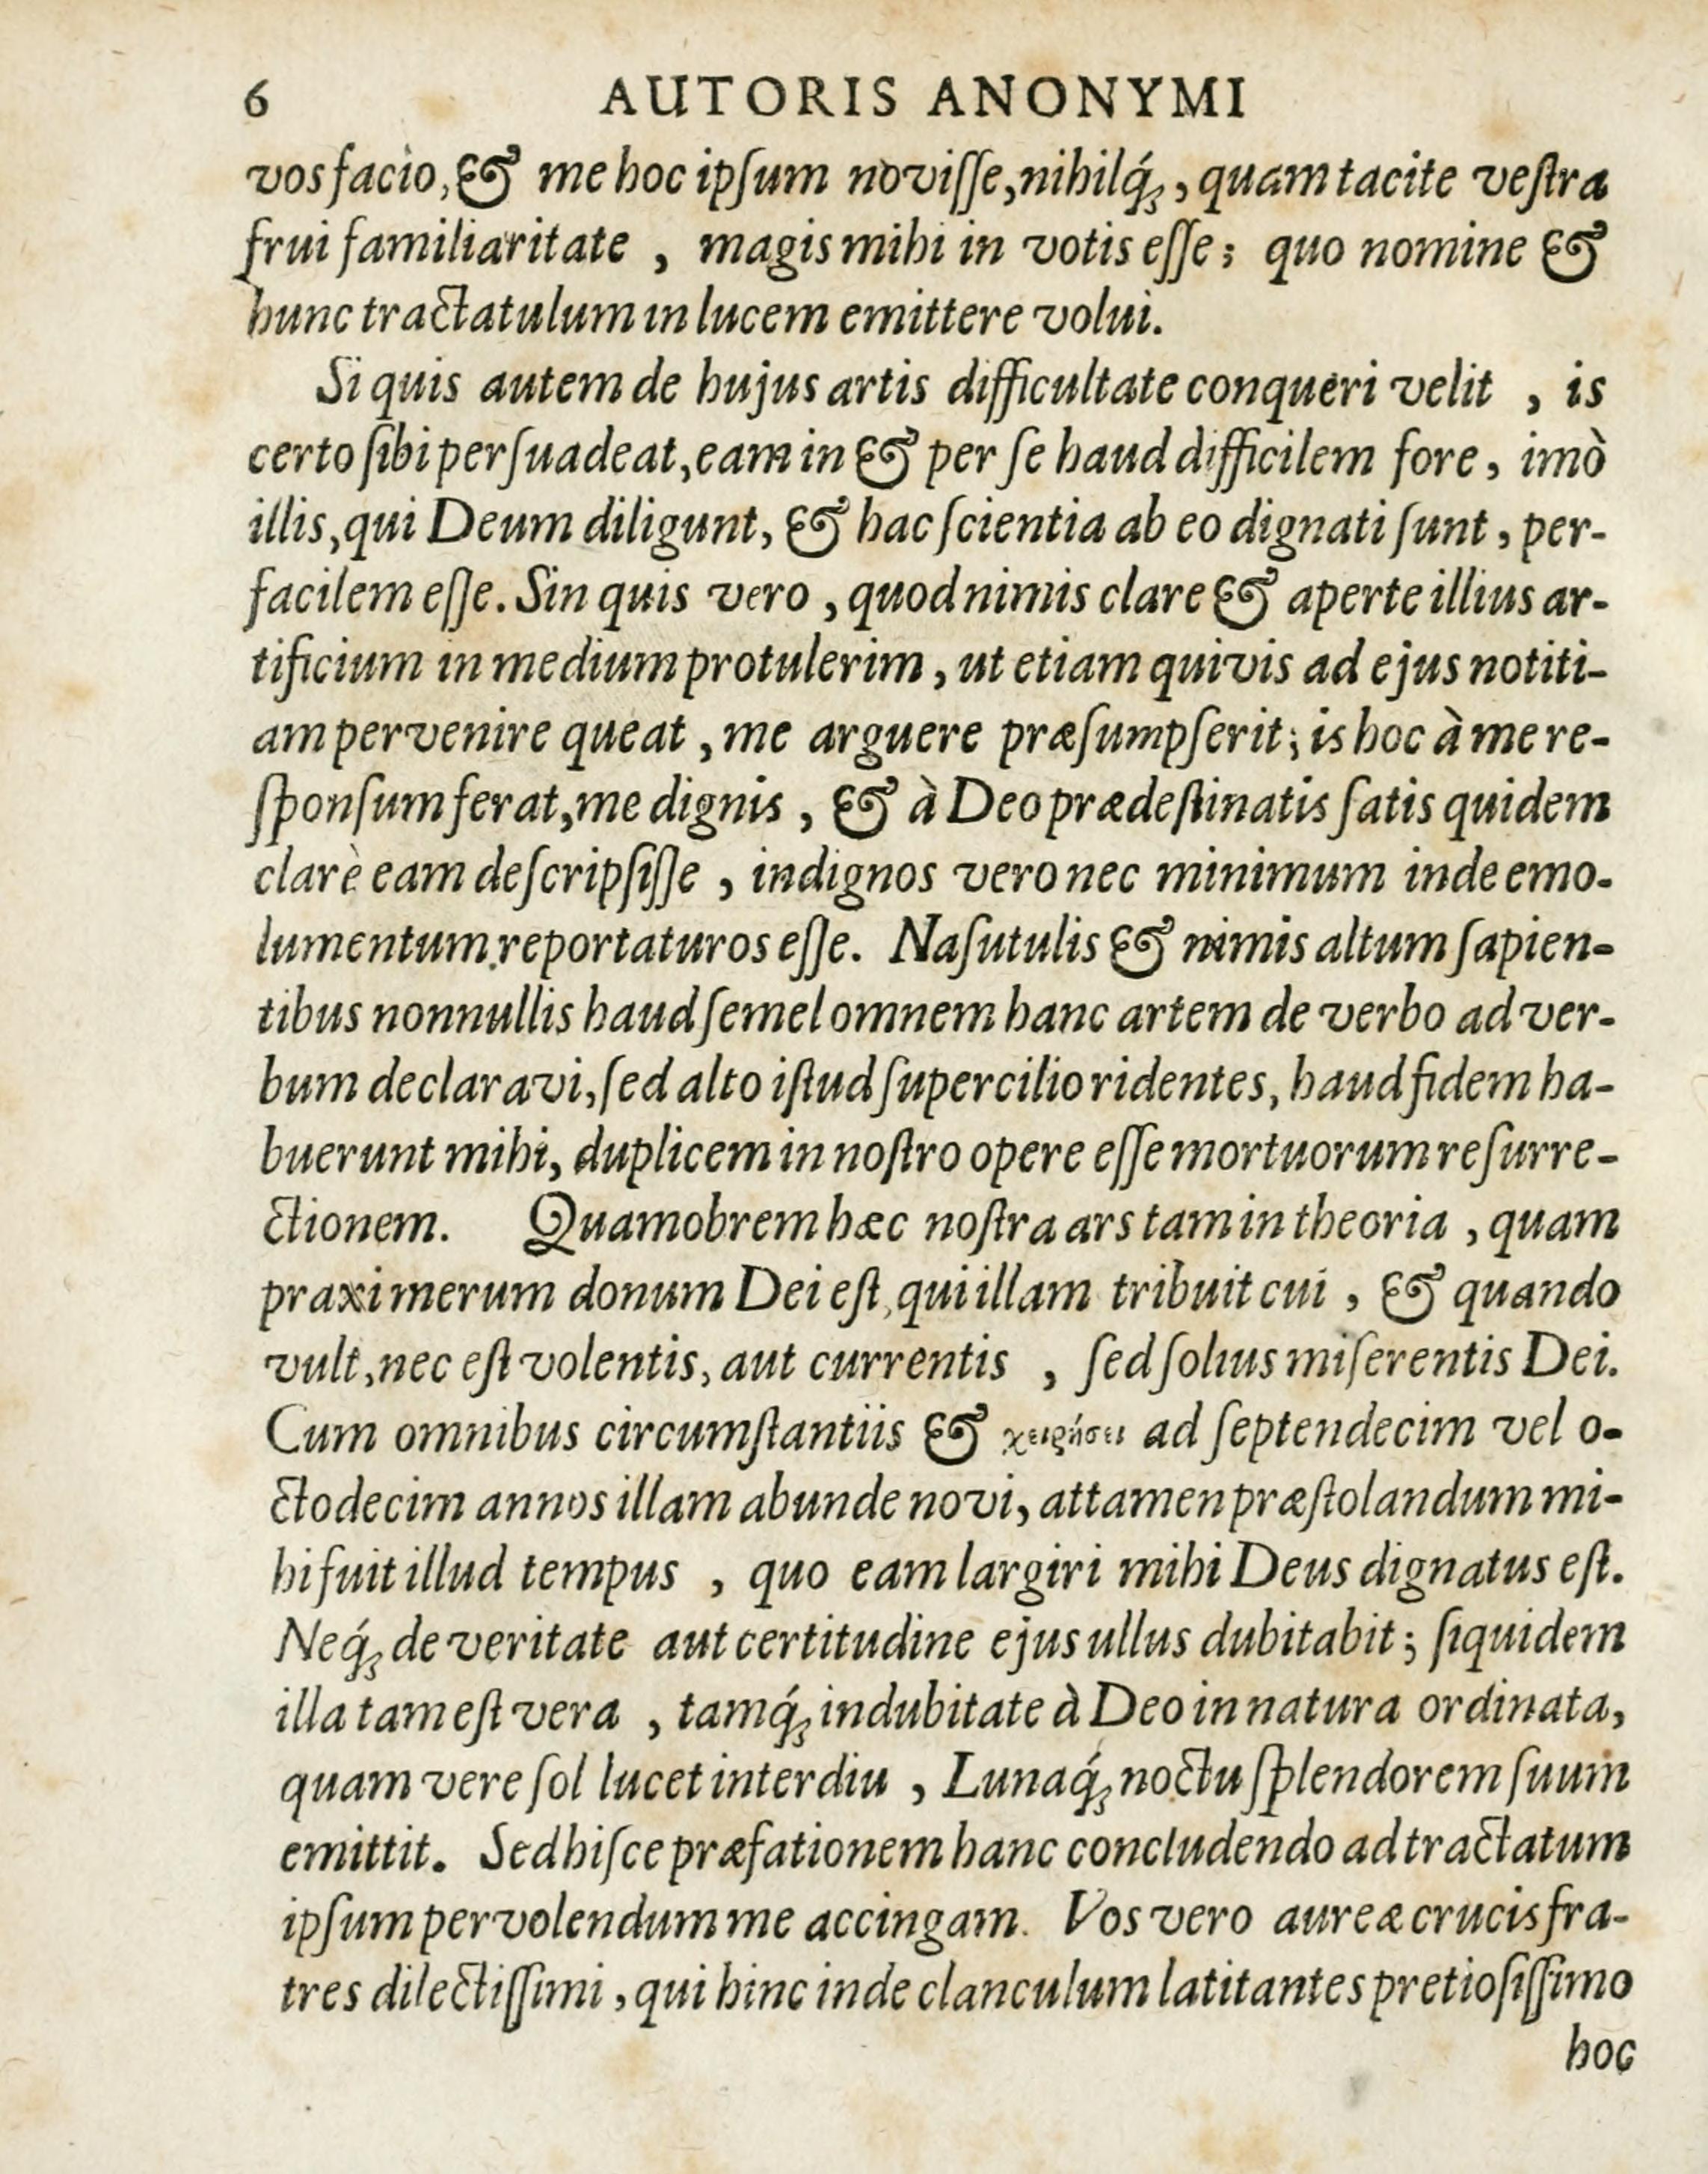 6 AUTORIS ANONYMI
vos facio, & me hoc ipſum noviſſe, nihilq́ꝫ, quam tacite veſtra
frui familiaritate, magis mihi in votis eſſe; quo nomine &
hunc tractatulum in lucem emittere volui.
Si quis autem de hujus artis difficultate conqueri velit, is
certo ſibi perſuadeat, eam in & per ſe haud difficilem fore, imò
illis, qui Deum diligunt, & hac ſcientia ab eo dignati ſunt, per-
facilem eſſe. Sin quis vero, quod nimis clare & aperte illius ar-
tificium in medium protulerim, ut etiam quivis ad ejus notiti-
am pervenire queat, me arguere præſumpſerit; is hoc à me re-
ſponſum ferat, me dignis, & à Deo prædeſtinatis ſatis quidem
clarè eam deſcripſiſſe, indignos vero nec minimum inde emo-
lumentum reportaturos eſſe. Naſutulis & nimis altum ſapien-
tibus nonnullis haud ſemel omnem hanc artem de verbo ad ver-
bum declaravi, ſed alto iſtud ſupercilio ridentes, haud fidem ha-
buerunt mihi, duplicem in noſtro opere eſſe mortuorum reſurre-
ctionem. Quamobrem hæc noſtra ars tam in theoria, quam
praxi merum donum Dei eſt, qui illam tribuit cui, & quando
vult, nec eſt volentis, aut currentis, ſed ſolius miſerentis Dei.
Cum omnibus circumſtantiis & χειρήσει ad ſeptendecim vel o-
ctodecim annos illam abunde novi, attamen præſtolandum mi-
hi fuit illud tempus, quo eam largiri mihi Deus dignatus eſt.
Neq́ꝫ de veritate aut certitudine ejus ullus dubitabit; ſiquidem
illa tam eſt vera, tamq́ꝫ indubitate à Deo in natura ordinata,
quam vere ſol lucet interdiu, Lunaq́ꝫ noctu ſplendorem ſuum
emittit. Sed hiſce præfationem hanc concludendo ad tractatum
ipſum pervolendum me accingam. Vos vero aureæ crucis fra-
tres dilectiſſimi, qui hinc inde clanculum latitantes pretioſiſſimo
hoc